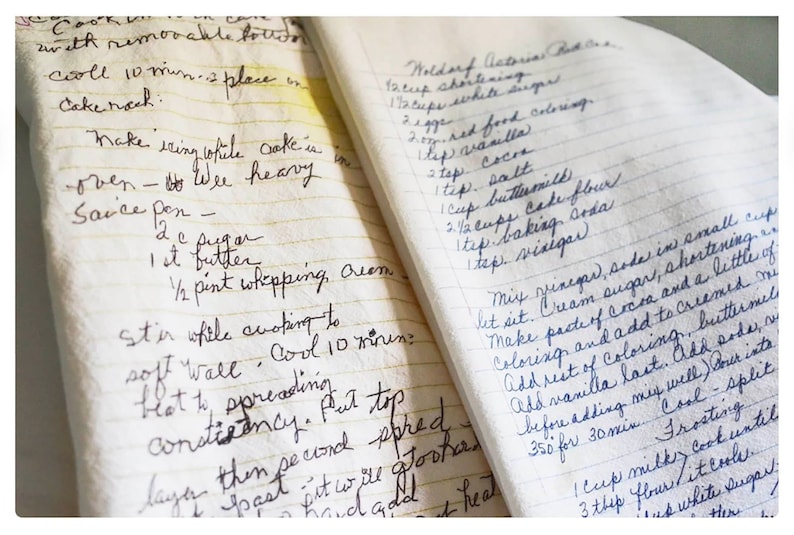 Cook
with removable bottom
cool 10 min. & place on
cake rack.
Make icing while cake is in
oven — Use heavy
Sauce pan —
2 c sugar
1 st butter
1/2 pint whipping cream
Stir while cooking to
soft ball. Cool 10 min.
beat to spreading
consistency. Put top
layer then second spred
fast it will
hard add
heat
Waldorf Astoria Red
1/2 cup shortening
1 1/2 cups white sugar
2 eggs
2 oz. red food coloring
1 tsp vanilla
2 tsp. cocoa
1 tsp. salt
1 cup buttermilk
2 1/2 cups cake flour
1 tsp. baking soda
1 tsp. vinegar
Mix vinegar, soda in small cup
let sit. Cream sugar, shortening an
Make paste of cocoa and a little of
coloring and add to creamed
Add rest of coloring, buttermil
Add vanilla last. Add soda, v
before adding mix well) Pour into
350° for 30 min. Cool - split
Frosting
1 cup milk) cook until
3 tbsp flour / it cools.
1 cup white sugar
butter